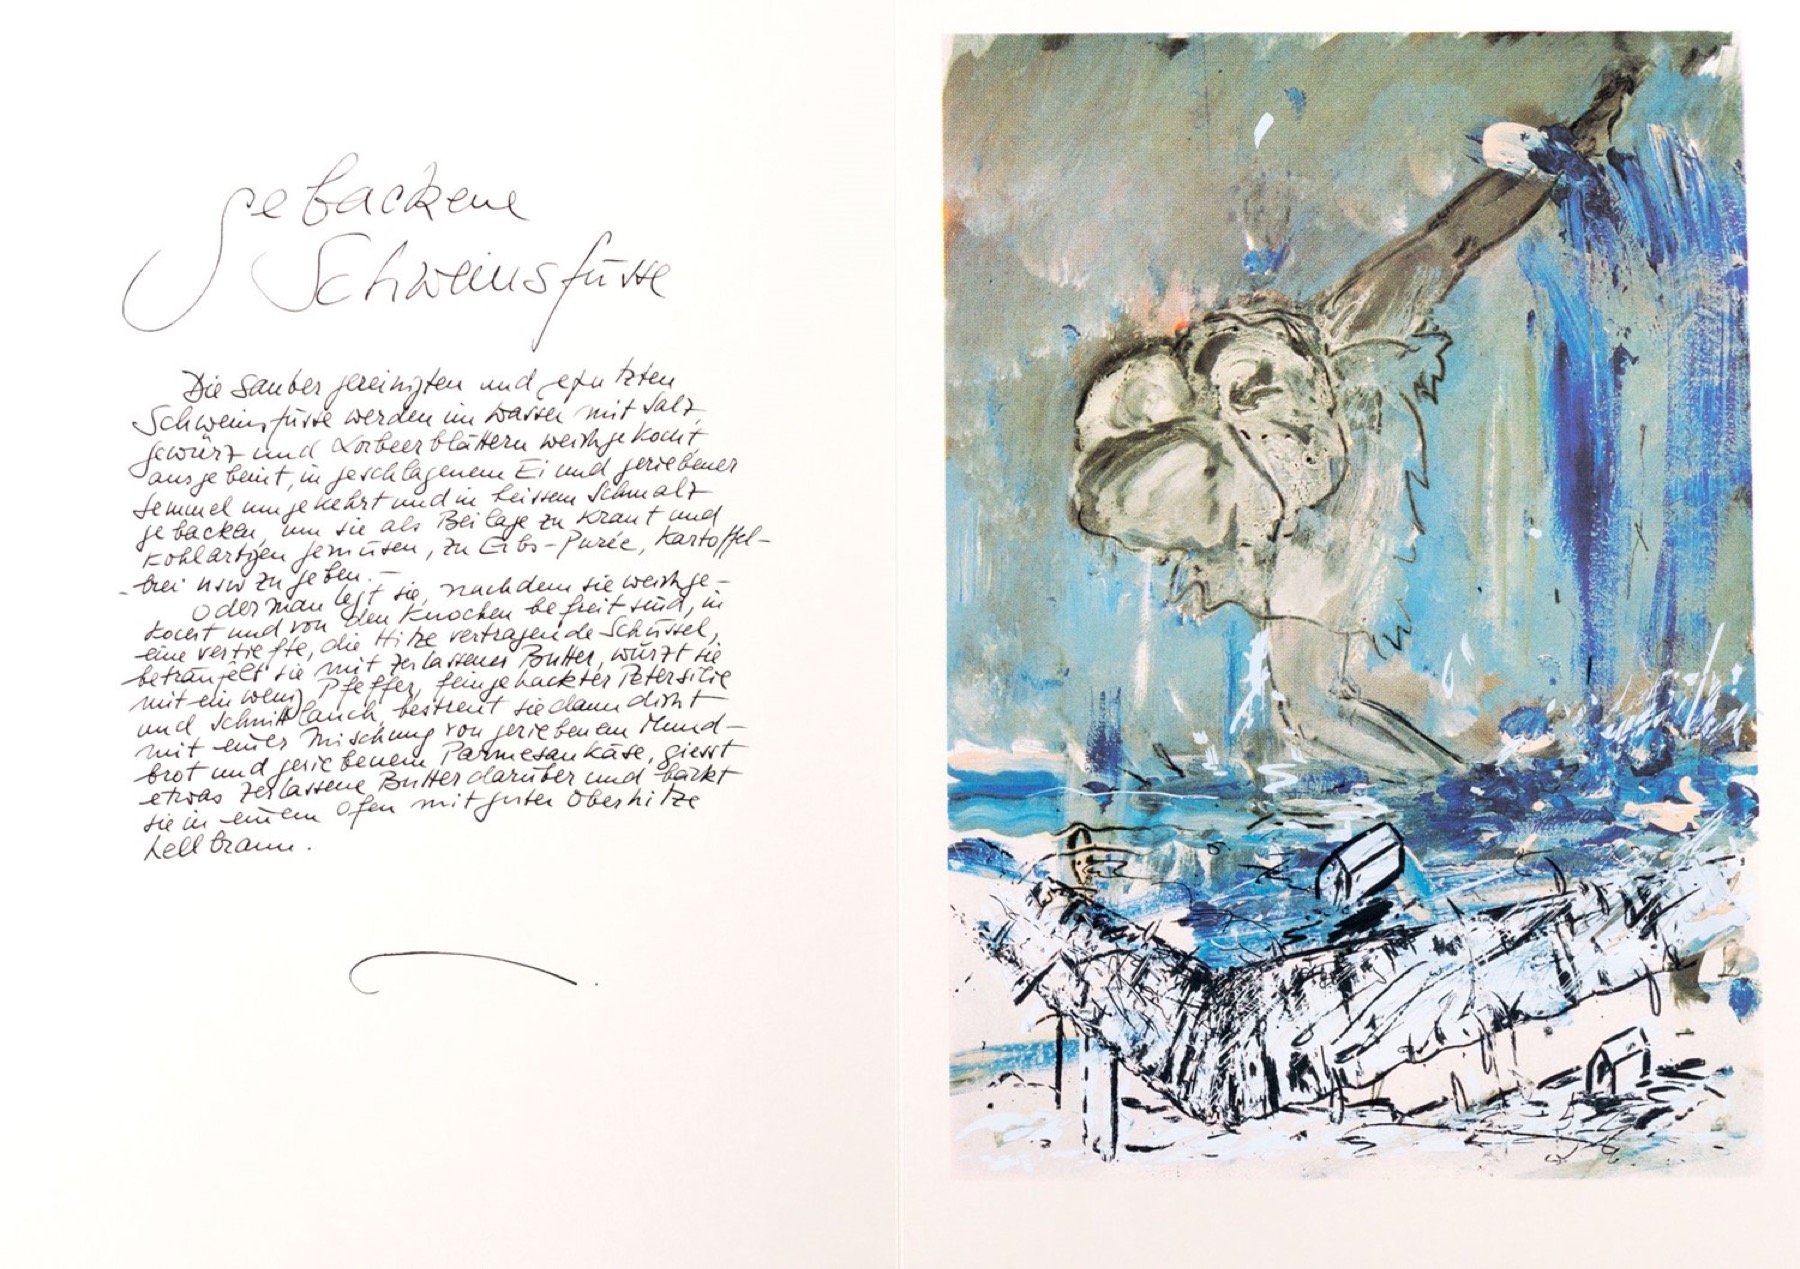 gebackene
Schweinsfüsse
Die sauber gereinigten und geputzten
Schweinsfüsse werden im Wasser mit Salz,
gewürz und Lorbeerblättern weichgekocht
ausgebeint, in geschlagenem Ei und geriebener
Semmel umgekehrt und in heissem Schmalz
gebacken, um sie als Beilage zu Kraut und
Kohlartigen gemüsen, zu Erbs-Purée, Kartoffel-
brei usw zu geben.—
Oder man legt sie, nachdem sie weichge-
kocht und von den Knochen befreit sind, in
eine vertiefte, die Hitze vertragende Schüssel,
beträufelt sie mit zerlassener Butter, würzt sie
mit ein wenig Pfeffer, feingehackter Petersilie
und Schnittlauch, bestreut sie dann dicht
mit einer Mischung von geriebenem Mund-
brot und geriebenem Parmesankäse, giesst
etwas zerlassene Butter darüber und bäckt
sie in einem Ofen mit guter Oberhitze
hellbraun.